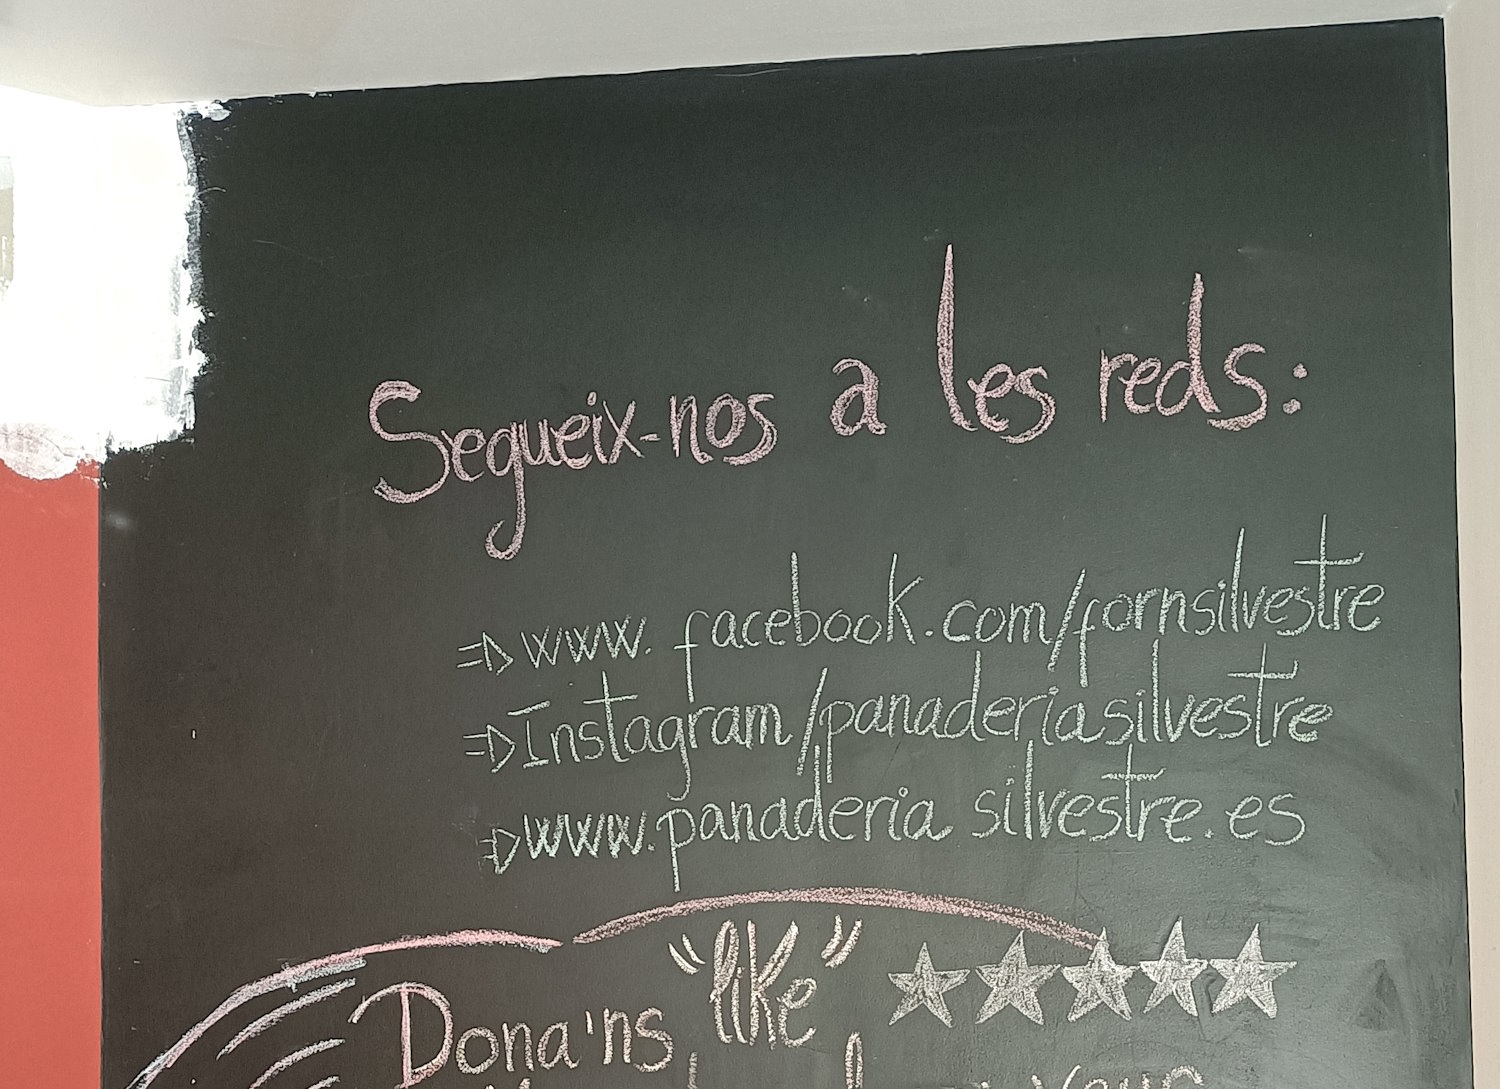 Segueix-nos a les reds:
⇒ www.facebook.com/fornsilvestre
⇒ Instagram/panaderiasilvestre
⇒ www.panaderia silvestre.es
Dona'ns "like" ★★★★★